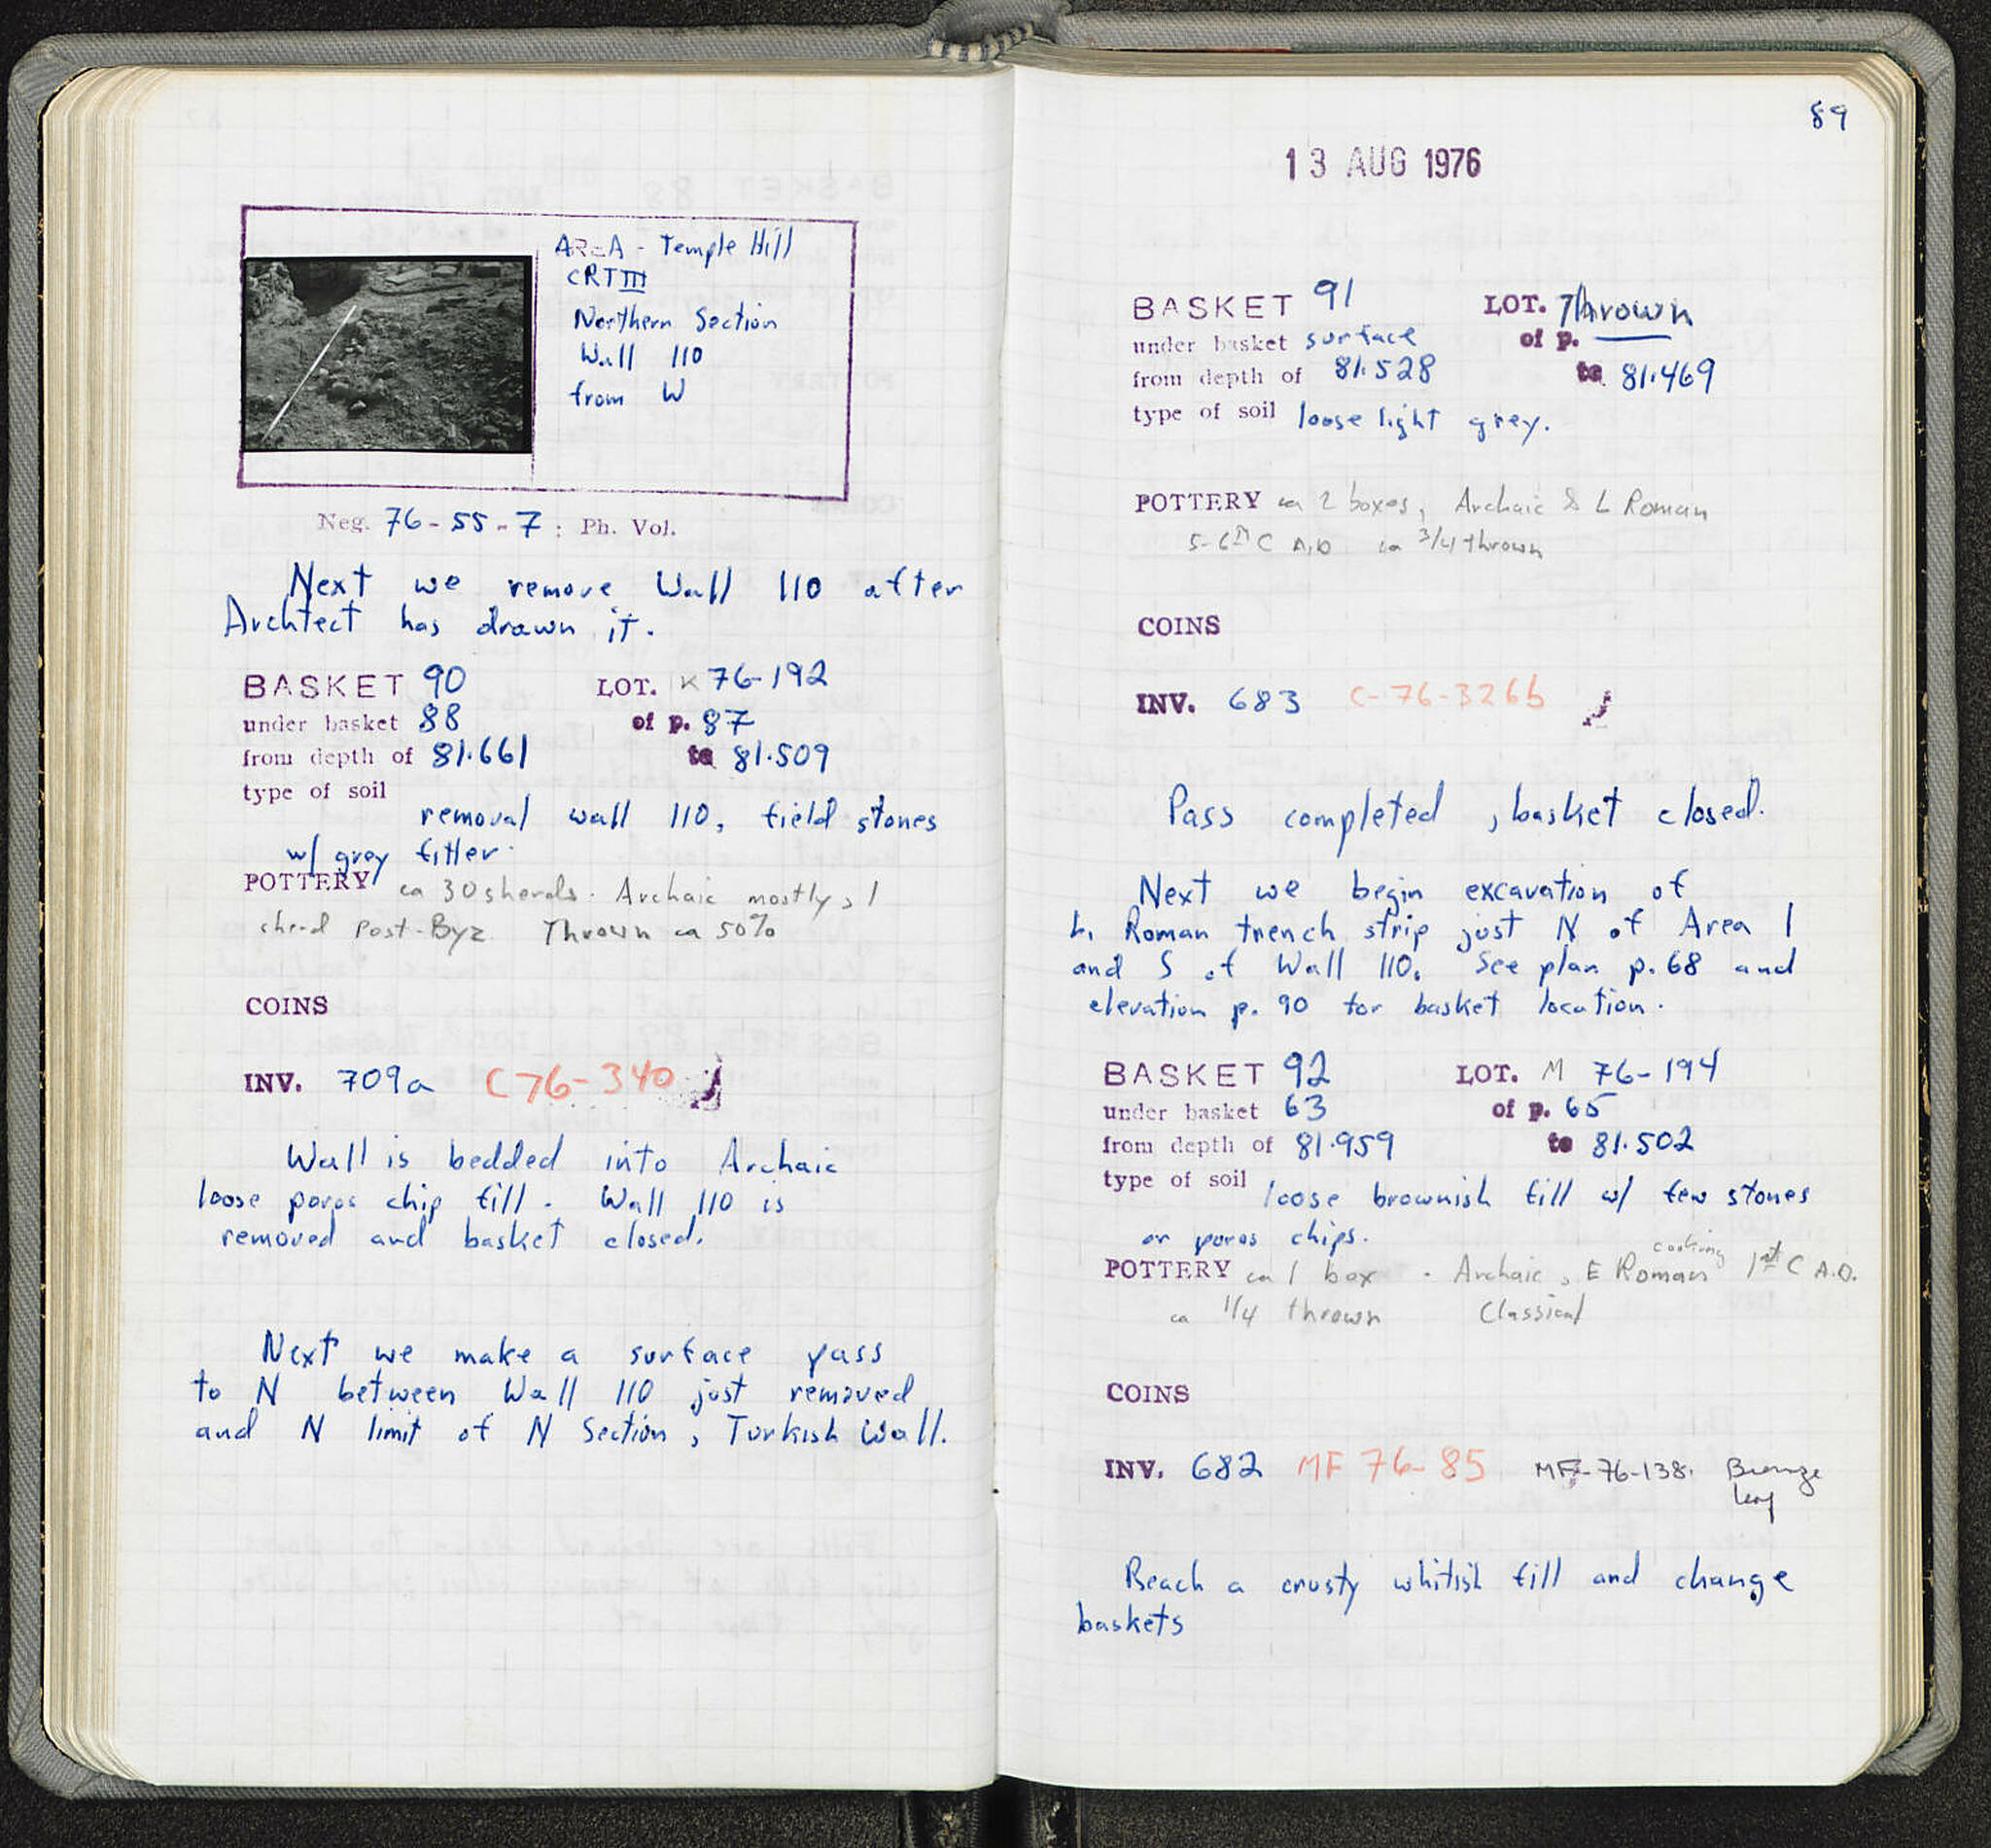 AREA - Temple Hill
CRT III
Northern Section
Wall 110
from W
Neg. 76-55-7 : Ph. Vol.
Next we remove Wall 110 after
Archtect has drawn it.
BASKET 90 LOT. K 76-192
under basket 88 of p. 87
from depth of 81.661 to 81.509
type of soil
removal wall 110, field stones
w/ grey filler.
POTTERY ca 30 sherds. Archaic mostly, 1
sherd Post-Byz Thrown ca 50%
COINS
INV. 709a C76-340
Wall is bedded into Archaic
loose poros chip fill. Wall 110 is
removed and basket closed.
Next we make a surface pass
to N between Wall 110 just removed
and N limit of N Section, Turkish Wall.
89
13 AUG 1976
BASKET 91 LOT. Thrown
under basket surface of p. —
from depth of 81.528 to 81.469
type of soil loose light grey.
POTTERY ca 2 boxes, Archaic & L Roman
5-6th C A.D ca 3/4 thrown
COINS
INV. 683 C-76-326b
Pass completed, basket closed.
Next we begin excavation of
L. Roman trench strip just N of Area 1
and S of Wall 110. See plan p.68 and
elevation p. 90 for basket location.
BASKET 92 LOT. M 76-194
under basket 63 of p. 65
from depth of 81.959 to 81.502
type of soil loose brownish fill w/ few stones
or poros chips.
cooking
POTTERY ca 1 box. Archaic, E Roman 1st C A.D.
ca 1/4 thrown Classical
COINS
INV. 682 MF 76-85 MF-76-138. Bronze
leaf
Reach a crusty whitish fill and change
baskets